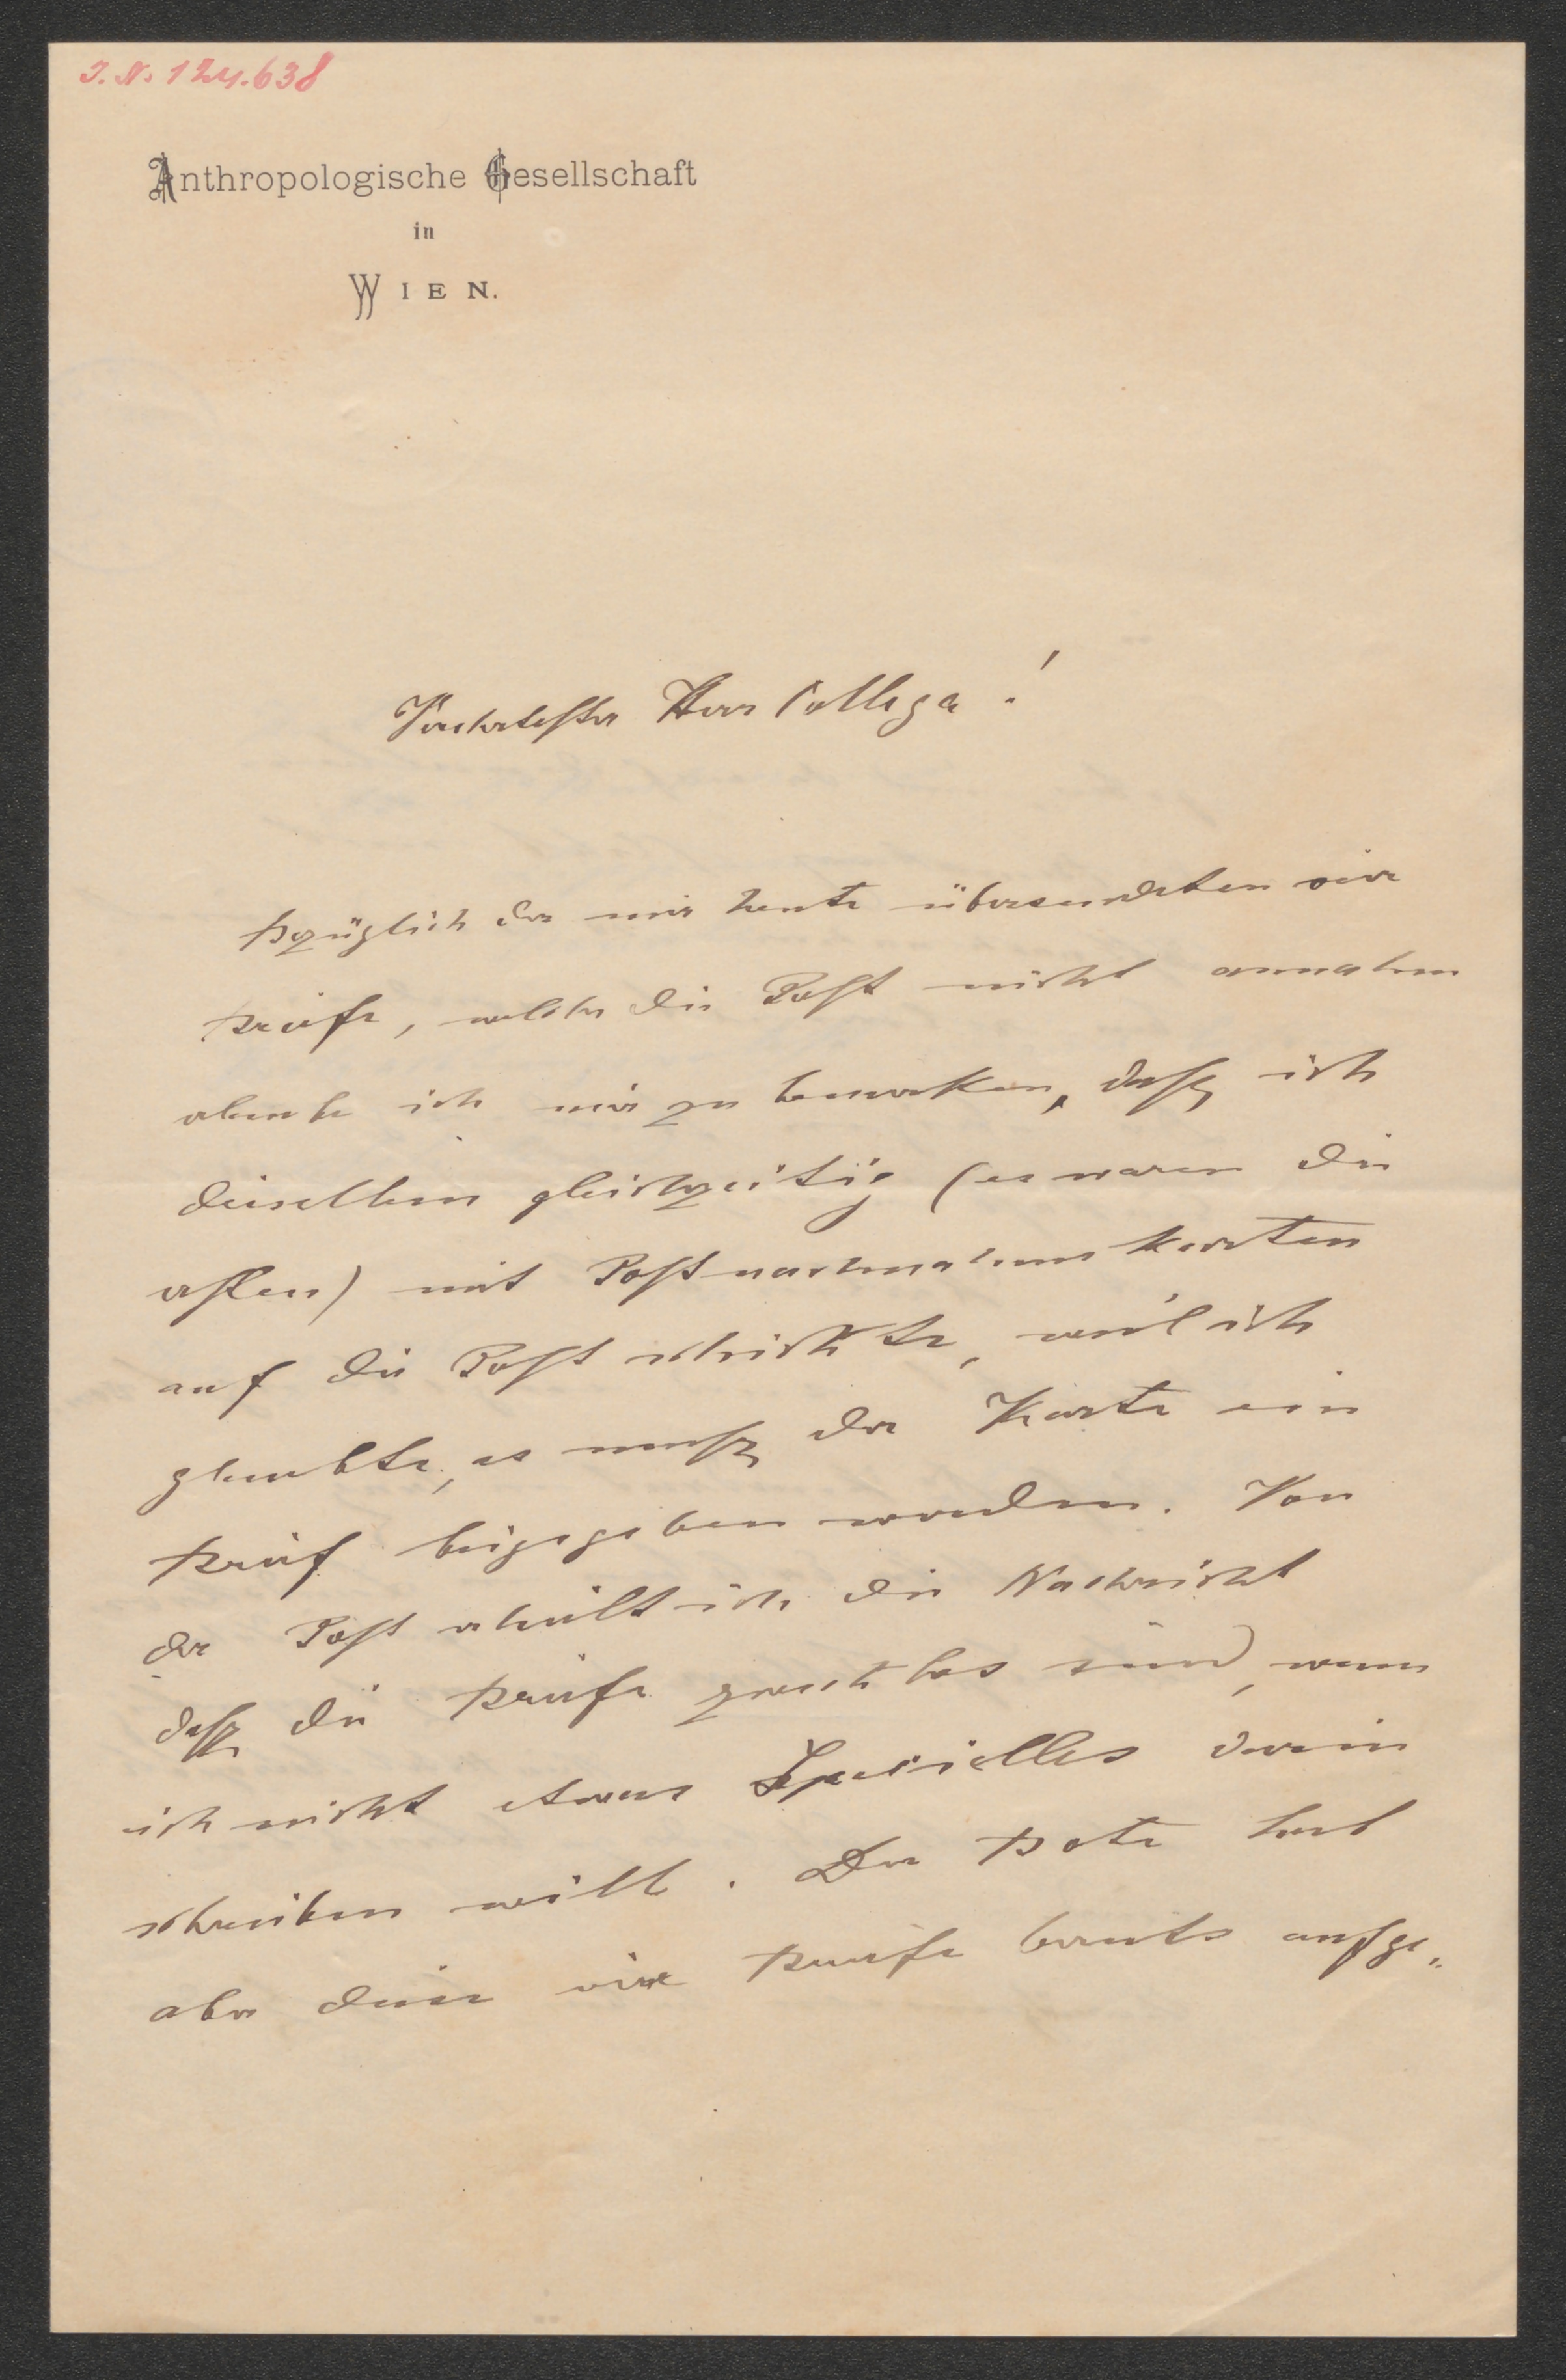 I. N. 124.638
Anthropologische Gesellschaft
in
WIEN.
Verehrtester Herr Collega!
Bezüglich der mir heute übersendeten vier
Briefe, welche die Post nicht annahm
erlaube ich mir zu bemerken, daß ich
dieselben gleichzeitig (es waren die
ersten) mit Postnachnahmskarten
auf die Post schickte, weil ich
glaubte, es muß der Karte ein
Brief beigegeben werden. Von
der Post erhielt ich die Nachricht
daß die Briefe zwecklos sind, wenn
ich nicht etwas Specielles darin
schreiben will. Der Bote hat
aber diese vier Briefe bereits aufge„